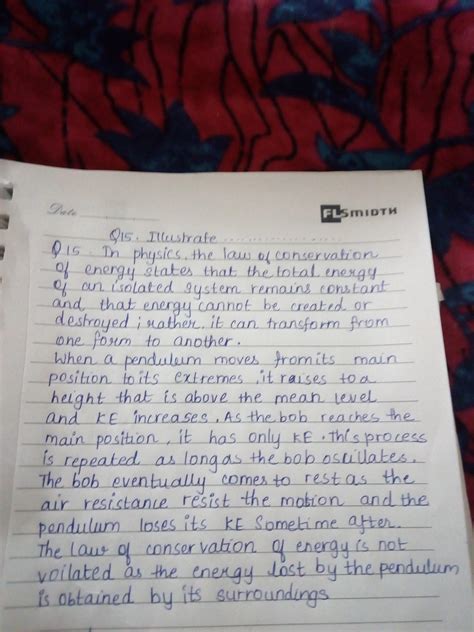 Date
FLSMIDTH
Q15. Illustrate ..............
Q15. In physics, the law of conservation
of energy states that the total energy
of an isolated system remains constant
and that energy cannot be created or
destroyed ; rather, it can transform from
one form to another.
When a pendulum moves from its main
position to its extremes, it raises to a
height that is above the mean level
and KE increases. As the bob reaches the
main position, it has only KE. This process
is repeated as long as the bob oscillates.
The bob eventually comes to rest as the
air resistance resist the motion and the
pendulum loses its KE Sometime after.
The law of conservation of energy is not
voilated as the energy lost by the pendulum
is obtained by its surroundings